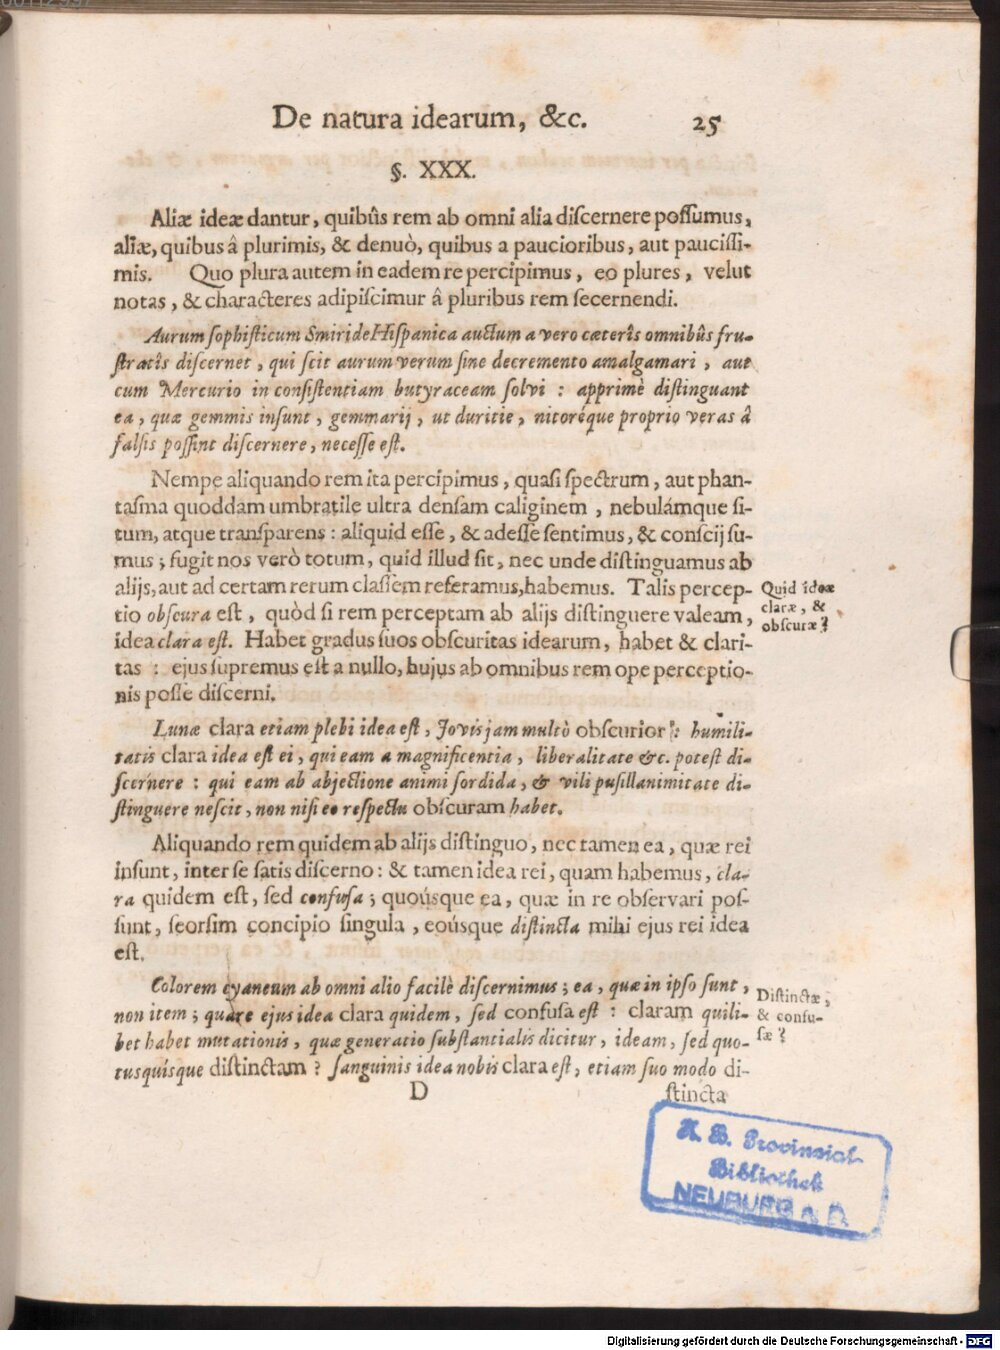 De natura idearum, &c. 25
§. XXX.
Aliæ ideæ dantur, quibûs rem ab omni alia discernere possumus,
aliæ, quibus â plurimis, & denuò, quibus a paucioribus, aut paucissi-
mis. Quo plura autem in eadem re percipimus, eo plures, velut
notas, & characteres adipiscimur â pluribus rem secernendi.
Aurum sophisticum Smiride Hispanica auctum a vero cæterîs omnibûs fru-
stratîs discernet, qui scit aurum verum sine decremento amalgamari, aut
cum Mercurio in consistentiam butyraceam solvi: apprimè distinguant
ea, quæ gemmis insunt, gemmarij, ut duritie, nitoréque proprio veras â
falsis possint discernere, necesse est.
Nempe aliquando rem ita percipimus, quasi spectrum, aut phan-
tasma quoddam umbratile ultra densam caliginem, nebulámque si-
tum, atque transparens: aliquid esse, & adesse sentimus, & conscij su-
mus; fugit nos verò totum, quid illud sit, nec unde distinguamus ab
alijs, aut ad certam rerum classem referamus, habemus. Talis percep-
tio obscura est, quòd si rem perceptam ab alijs distinguere valeam,
idea clara est. Habet gradus suos obscuritas idearum, habet & clari-
tas: ejus supremus est a nullo, hujus ab omnibus rem ope perceptio-
nis posse discerni.
Quid ideæ
claræ, &
obscuræ?
Lunæ clara etiam plebi idea est, Jovis jam multò obscurior: humili-
tatis clara idea est ei, qui eam a magnificentia, liberalitate &c. potest di-
scernere: qui eam ab abjectione animi sordida, & vili pusillanimitate di-
stinguere nescit, non nisi eo respectu obscuram habet.
Aliquando rem quidem ab alijs distinguo, nec tamen ea, quæ rei
insunt, inter se satis discerno: & tamen idea rei, quam habemus, cla-
ra quidem est, sed confusa; quoúsque ea, quæ in re observari pos-
sunt, seorsim concipio singula, eoúsque distincta mihi ejus rei idea
est.
Colorem cyaneum ab omni alio facilè discernimus; ea, quæ in ipso sunt,
non item; quare ejus idea clara quidem, sed confusa est: claram quili-
bet habet mutationis, quæ generatio substantialis dicitur, ideam, sed quo-
tusquísque distinctam? sanguinis idea nobis clara est, etiam suo modo di-
Distinctæ,
& confu-
sæ?
D stincta
K. B. Provinzial-
Bibliothek
NEUBURG a. D.
Digitalisierung gefördert durch die Deutsche Forschungsgemeinschaft - DFG